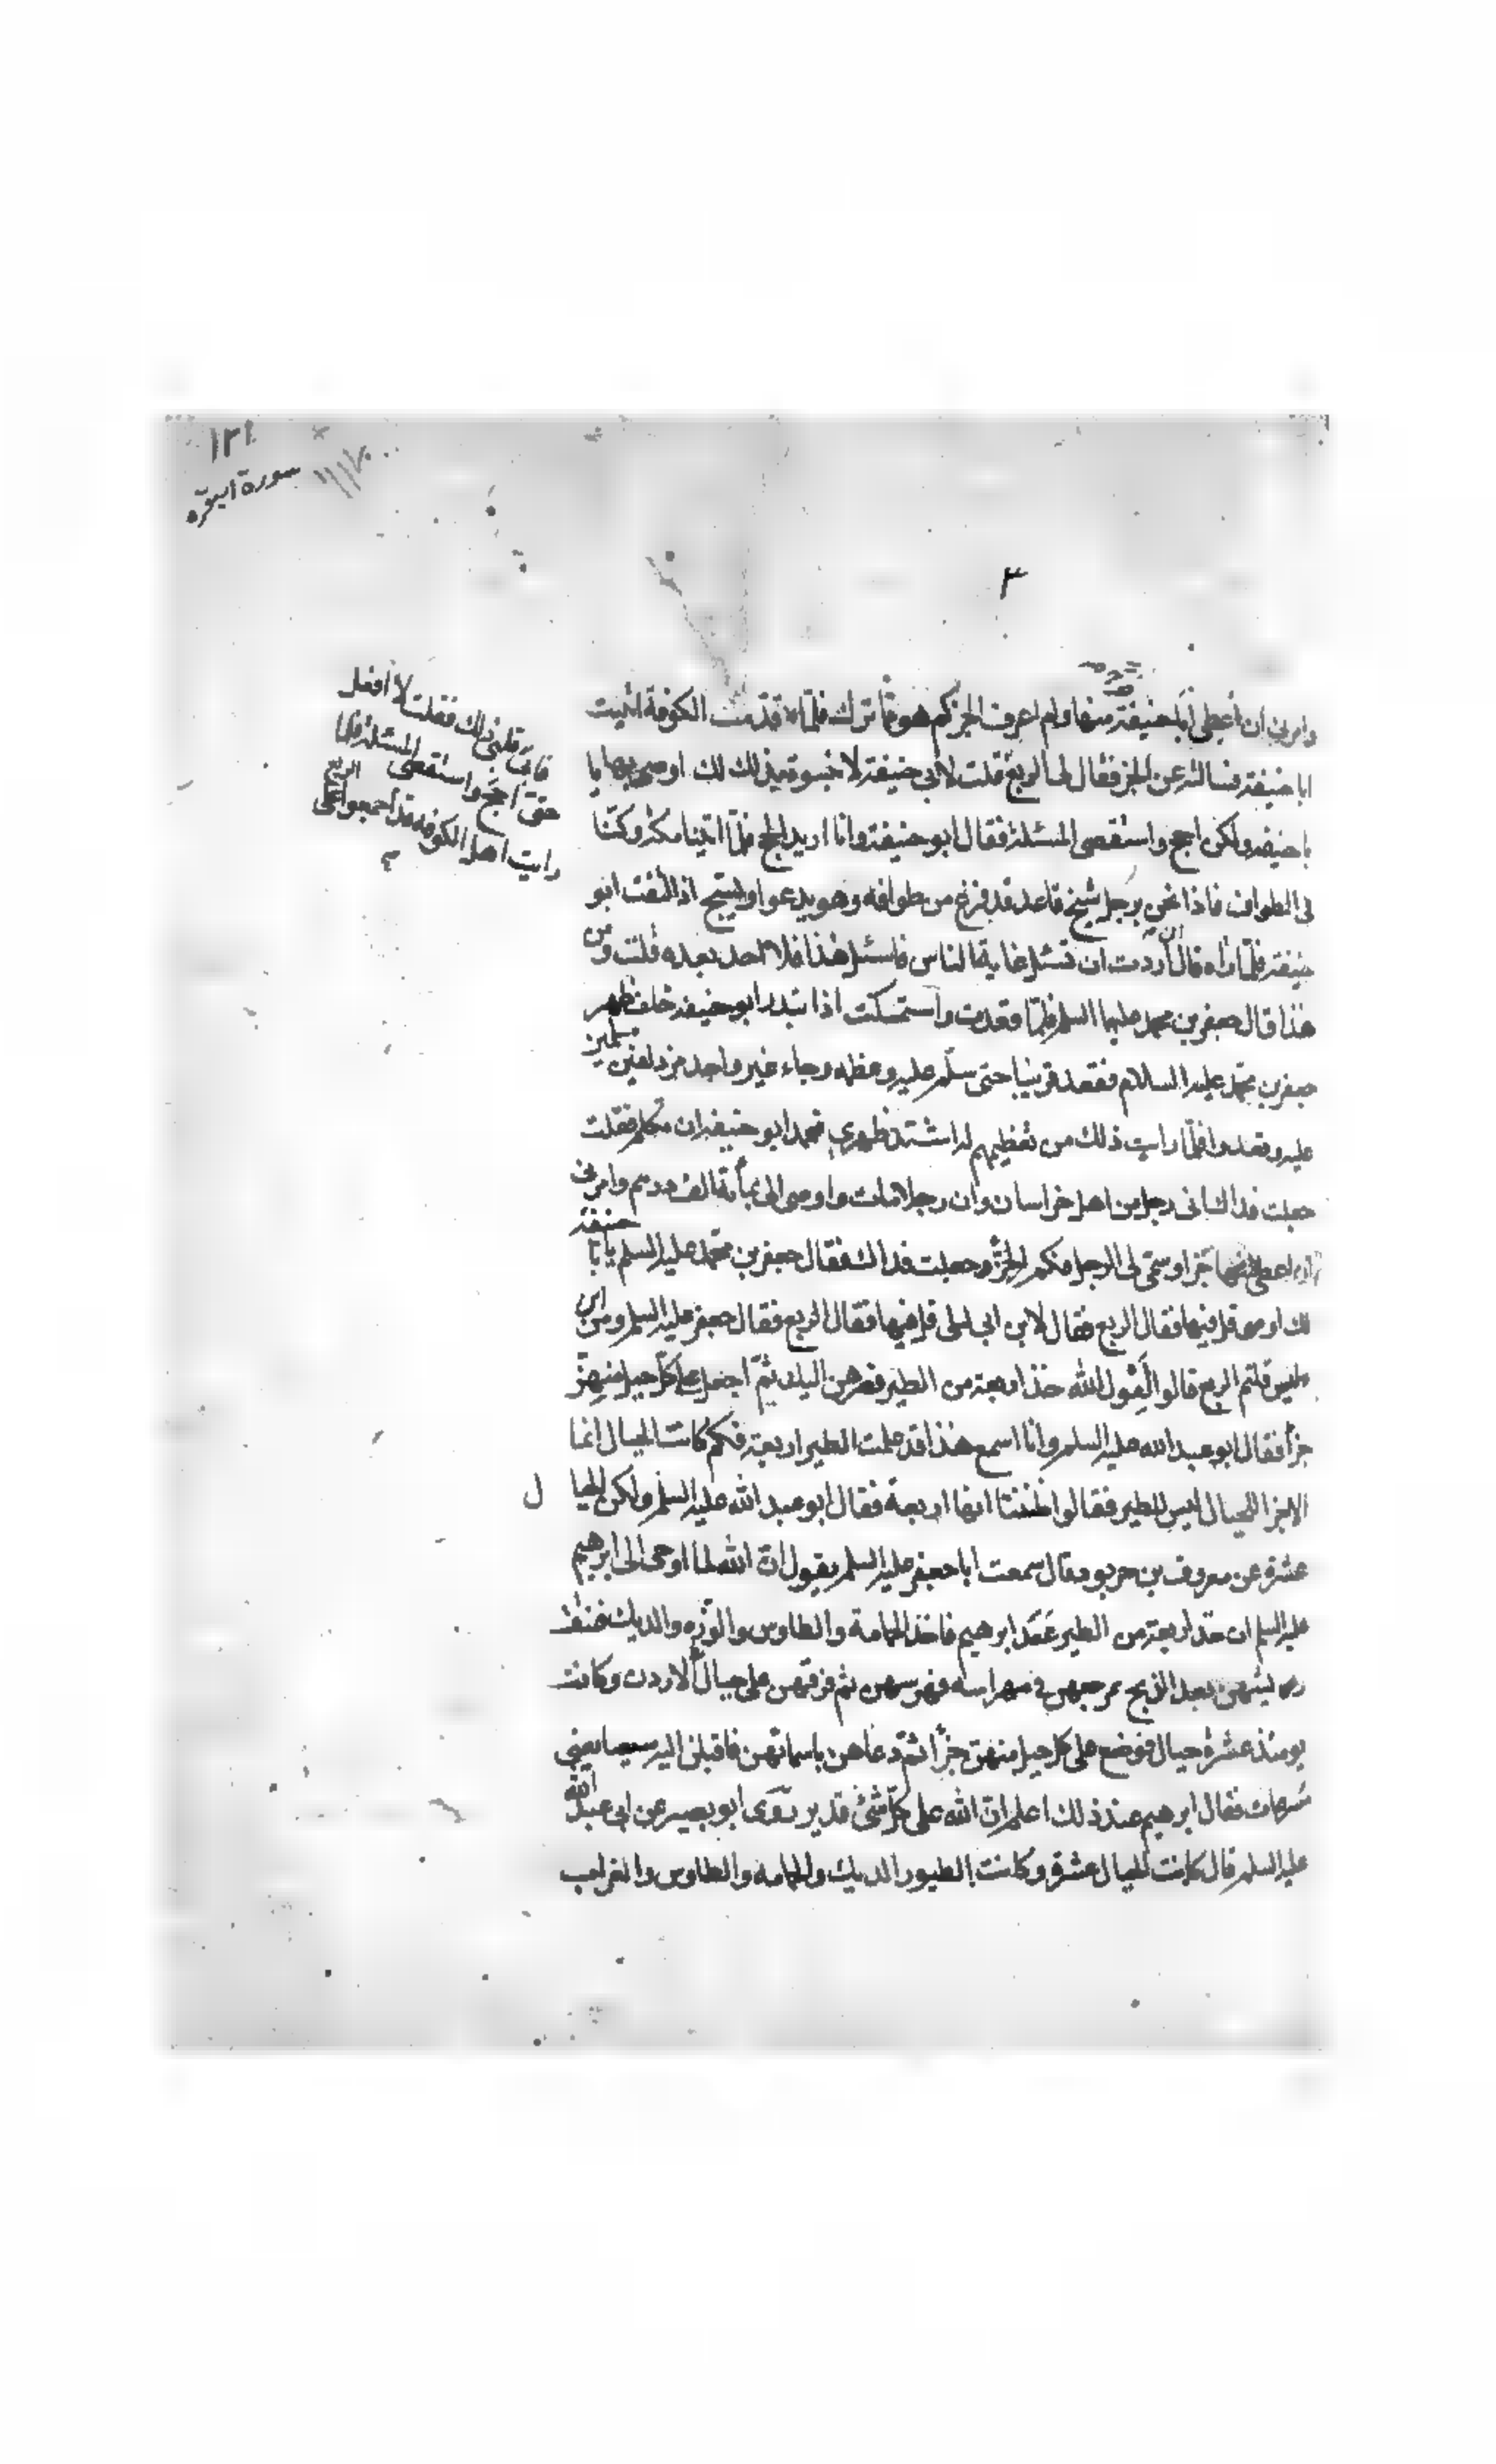 ١٢١
سورة البقره
٣
وامرني ان اعطي ابا حنيفة منها ولم اعرف الجزء كم هو مما ترك فلما قدمت الكوفة اتيت
ابا حنيفة فسالته عن الجزء فقال لي الربع فقلت لابي حنيفة لا
با حنيفه ولكن احج واستقصى المسئلة فقال ابو حنيفة وانا اريد الحج فلما اتينا مكة وكنا
في الطواف فاذا نحن برجل شيخ قاعد قد فرغ من طوافه وهو يدعو او يسبح اذ التفت ابو
حنيفة فلما راه قال ان اردت ان تسئل غاية الناس فاسئل هذا فلا احد بعده قلت ومن
هذا قال جعفر بن محمد عليهما السلم فلما قعدت واستمكنت اذا ستدر ابو حنيفه خلف ظهر
جعفر بن محمد عليه السلام فقعد قريبا حتى سلم عليه وعظمه وجاء غير واحد مزدلفين مسلمين
عليه وقعدوا فلما رايت ذلك من تعظيمهم له اشتد ظهري فجمد ابو حنيفه ان تكلم فقلت
جعلت فداك اني رجل من اهل خراسان وان رجلا مات واوصى الى بمأة الف درهم وامرني
ان اعطي منها جزا وسمى لي الرجل فكم الجزء جعلت فداك فقال جعفر بن محمد عليه السلم يا با حنيفة
لك اوصى قل فيها فقال الربع فقال لابن ابي ليلى قل فيها فقال الربع فقال جعفر عليه السلم ومن اين
قلتم الربع قالوا لقول الله خذ اربعة من الطير فصرهن اليك ثم اجعل على كل جبل منهن
جزأ فقال ابو عبد الله عليه السلم وانا اسمع هذا قد علمت الطير اربعة فكم كانت الجبال انما
الاجزا للجبال ليس للطير فقالوا ظننا انها اربعة فقال ابو عبد الله عليه السلم ولكن الجبا ل
عشرة عن معروف بن خربوذ قال سمعت ابا جعفر عليه السلم يقول ان الله لما اوحى الى ابرهيم
عليه السلم ان خذ اربعة من الطير عمد ابرهيم فاخذ الحمامة والطاوس والوزه والديك فنتف
ريشهن بعد الذبح ثم جمعهن في مهراسه فهرسهن ثم فرقهن على جبال الاردن وكانت
يومئذ عشرة جبال فوضع على كل جبل منهن جزأ ثم دعاهن باسمائهن فاقبلن اليه سعيا يعني
سرعات فقال ابرهيم عند ذلك اعلم ان الله على كل شئ قدير روى ابو بصير عن ابي عبد الله
عليه السلم قال كانت الجبال عشرة وكانت الطيور الديك والحمامه والطاوس والغراب
فابى قلبي ذلك فقلت لا افعل
حتى احج واستقصى المسئلة فلما
رايت اهل الكوفه قد اجمعوا على الربع